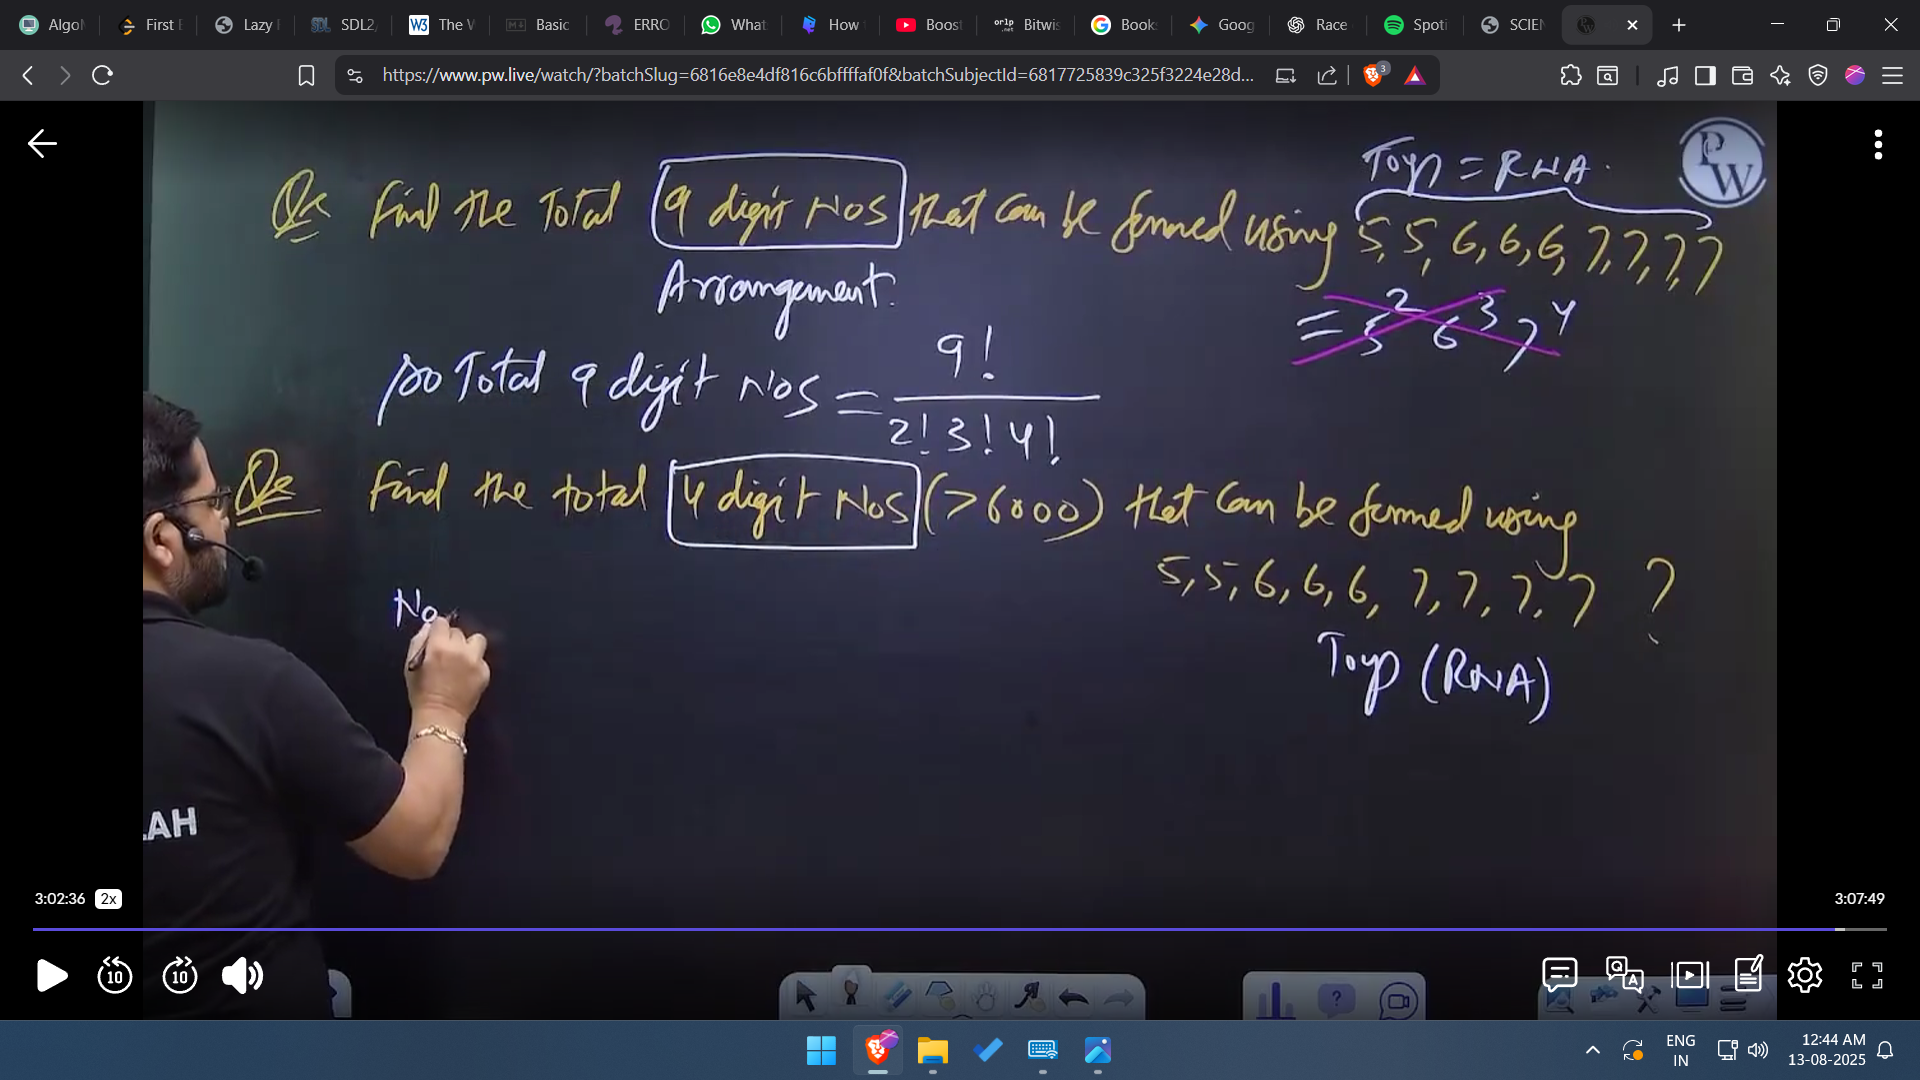 Algo
First
Lazy
SDL2,
The W
Basic
ERRO
What
How
Boost
Bitwis
Book
Goog
Race
Spoti
SCIEN
https://www.pw.live/watch/?batchSlug=6816e8e4df816c6bffffaf0f&batchSubjectId=6817725839c325f3224e28d...
3
PW
Toyp = RNA.
Qs Find the Total 9 digit Nos that can be formed using 5, 5, 6, 6, 6, 7, 7, 7, 7
Arrangement.
= 5² 6³ 7⁴
so Total 9 digit Nos = 9! / 2! 3! 4!
Qs Find the total 4 digit Nos (>6000) that can be formed using
5, 5, 6, 6, 6, 7, 7, 7, 7 ?
No
Toyp (RNA)
LAH
3:02:36 2x
3:07:49
10 10
ENG
IN
12:44 AM
13-08-2025